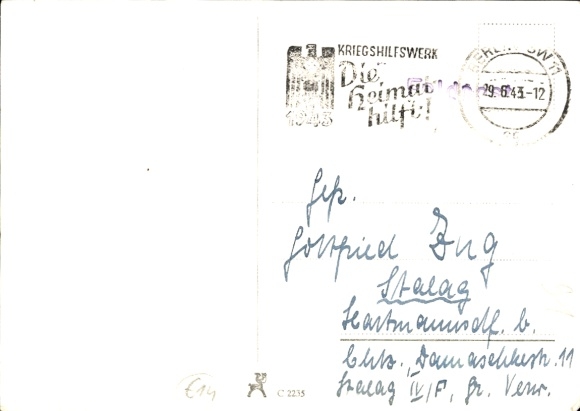 KRIEGSHILFSWERK
Die
Heimat
hilft!
1943
SW 11
29.6.43.-12
Gefr.
Gottfried Zug
Stalag
Hartmannsdf. b.
Chtz., Damaschkestr. 11
Stalag IV/F, Gr. Verw.
€14
C 2235